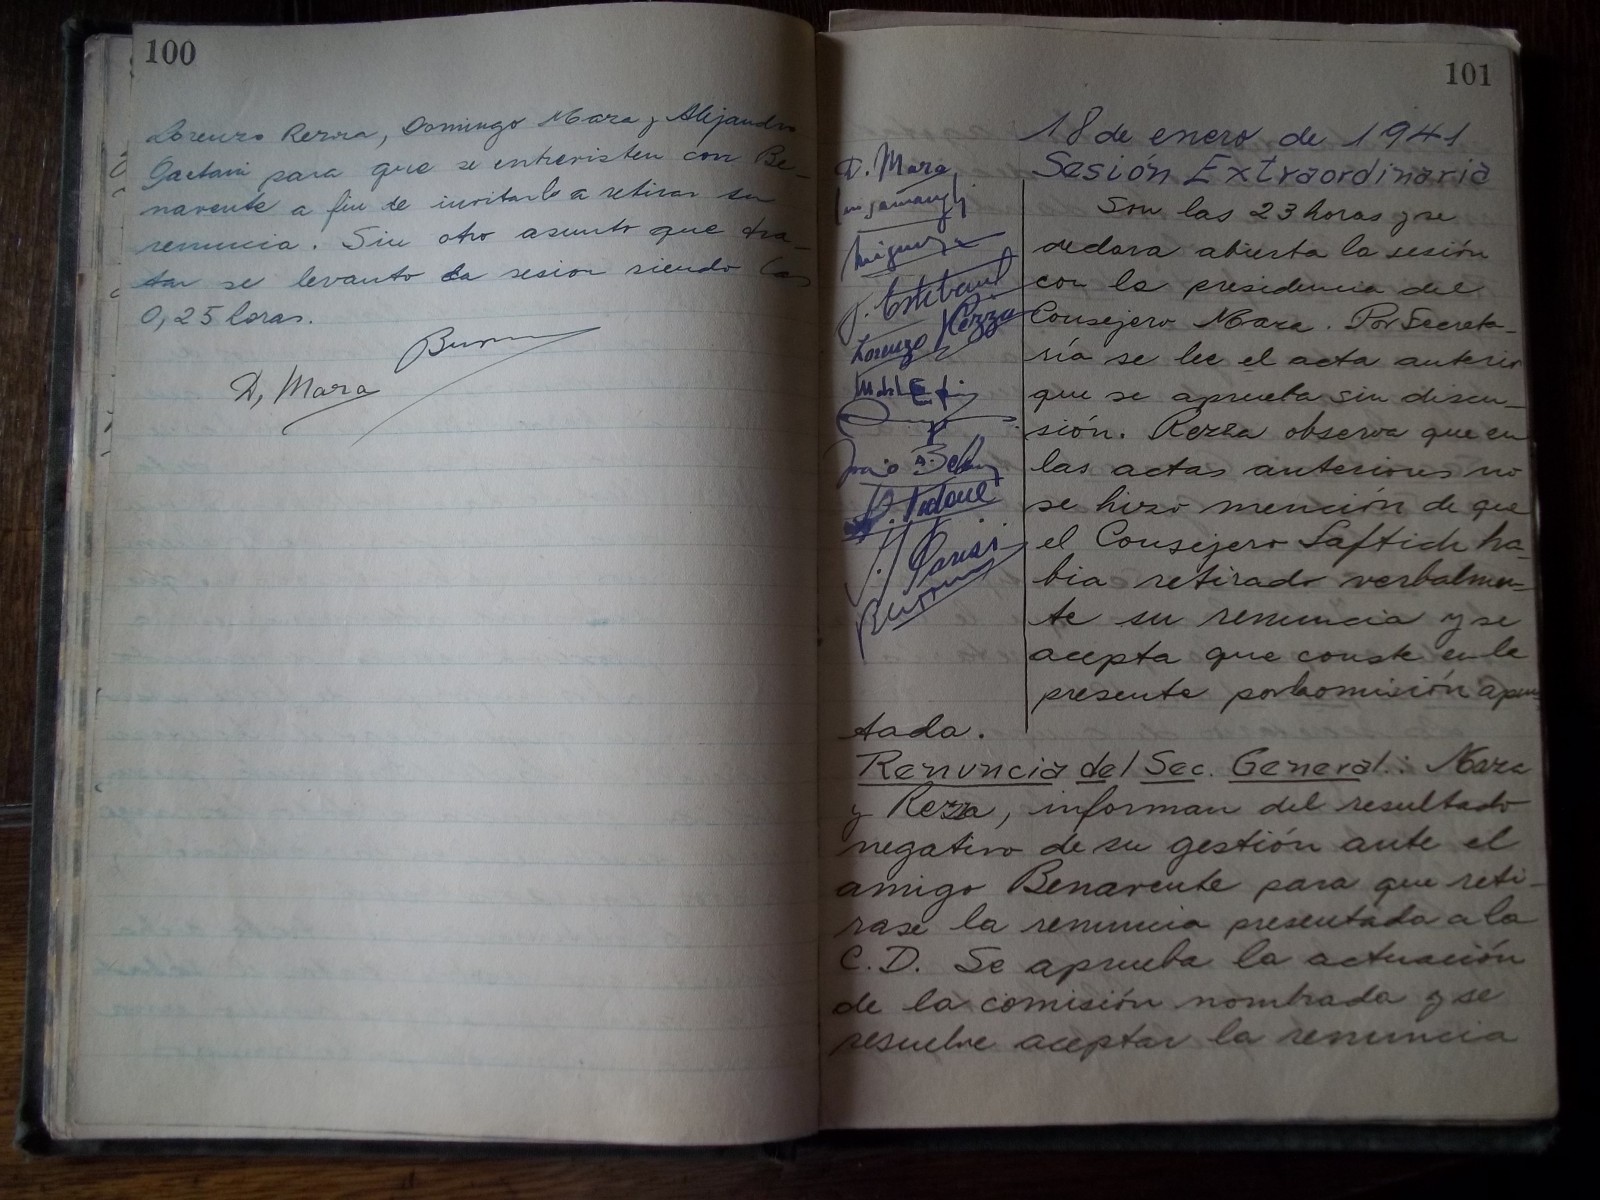 100
Lorenzo Rezza, Domingo Mara y Alejandro
Gaetani para que se entrevisten con Be-
navente a fin de invitarlo a retirar su
renuncia. Sin otro asunto que tra-
tar se levanto la sesion siendo las
0,25 horas.
D, Mara
101
18 de enero de 1941
Sesión Extraordinaria
D. Mara
J. Esteband
Lorenzo Rezza
J. Parisi
Son las 23 horas y se
declara abierta la sesión
con la presidencia del
Consejero Mara. Por Secreta-
ría se lee el acta anterior
que se aprueba sin discu-
sión. Rezza observa que en
las actas anteriores no
se hizo mención de que
el Consejero Saftich ha-
bia retirado verbalmen-
te su renuncia y se
acepta que conste en la
presente por la omisión apun-
tada.
Renuncia del Sec. General.: Mara
y Rezza, informan del resultado
negativo de su gestión ante el
amigo Benavente para que reti-
rase la renuncia presentada a la
C.D. Se aprueba la actuación
de la comisión nombrada y se
resuelve aceptar la renuncia